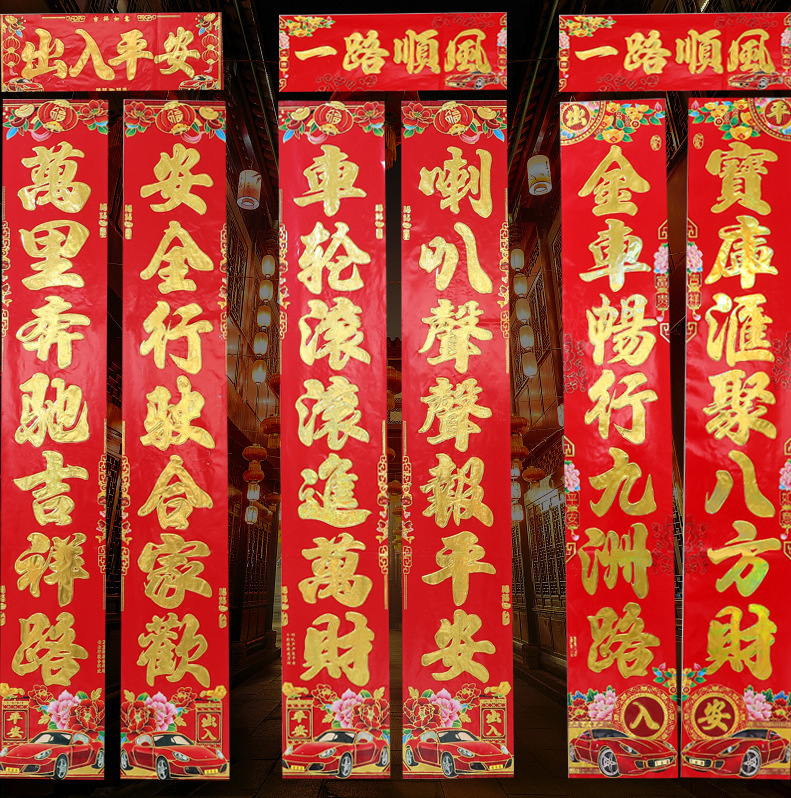 吉祥如意
出入平安
萬里奔驰吉祥路
安全行驶合家歡
平安
出入
一路順風
車轮滚滚進萬財
喇叭聲聲報平安
平安
出入
一路順風
出
平
金車暢行九洲路
寶庫滙聚八方財
富貴
吉祥
平安
入
安